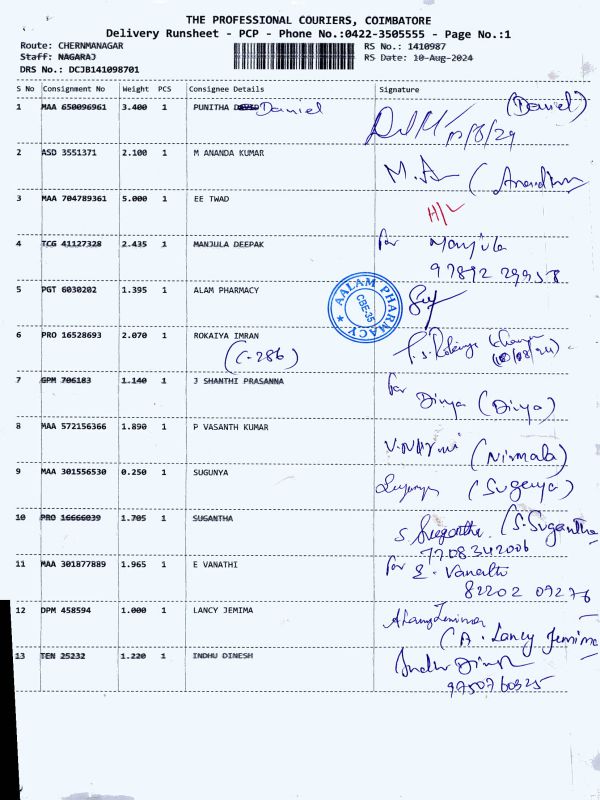 THE PROFESSIONAL COURIERS, COIMBATORE
Delivery Runsheet - PCP - Phone No.:0422-3505555 - Page No.:1
Route: CHERNMANAGAR RS No.: 1410987
Staff: NAGARAJ RS Date: 10-Aug-2024
DRS No.: DCJB141098701
S No Consignment No Weight PCS Consignee Details Signature
1 MAA 650096961 3.400 1 PUNITHA Daniel (Daniel)
2 ASD 3551371 2.100 1 M ANANDA KUMAR
3 MAA 704789361 5.000 1 EE TWAD H/L
4 TCG 41127328 2.435 1 MANJULA DEEPAK for Manjula
97892 29958
5 PGT 6030202 1.395 1 ALAM PHARMACY AALAM PHARMACY CBE-35
6 PRO 16528693 2.070 1 ROKAIYA IMRAN
(C-286) (10/08/24)
7 GPM 706183 1.140 1 J SHANTHI PRASANNA for Divya (Divya)
8 MAA 572156366 1.890 1 P VASANTH KUMAR (Nirmala)
9 MAA 301556530 0.250 1 SUGUNYA (Sugunya)
10 PRO 16666039 1.705 1 SUGANTHA S. Sugantha (S. Sugantha
7708342006
11 MAA 301877889 1.965 1 E VANATHI for E. Vanathi
82202 09276
12 DPM 458594 1.000 1 LANCY JEMIMA
(A. Lancy Jemima
13 TEN 25232 1.220 1 INDHU DINESH Indhu Dinesh
9750760325